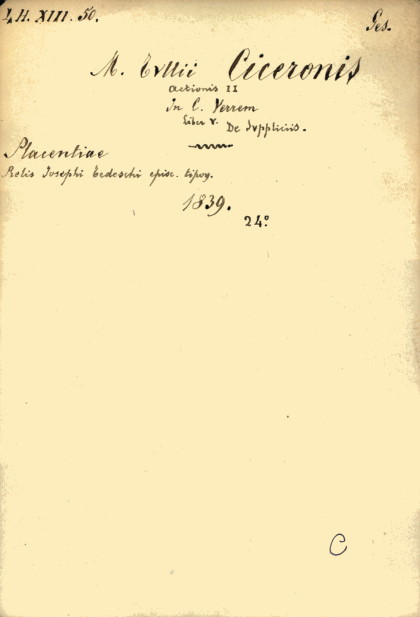 L. H. XIII. 50. Ges.
M. Tvllii Ciceronis
Actionis II
In C. Verrem
Liber V. De Svppliciis.
Placentiae
Prelis Iosephi Tedeschi episc. tipog.
1839.
24°
C